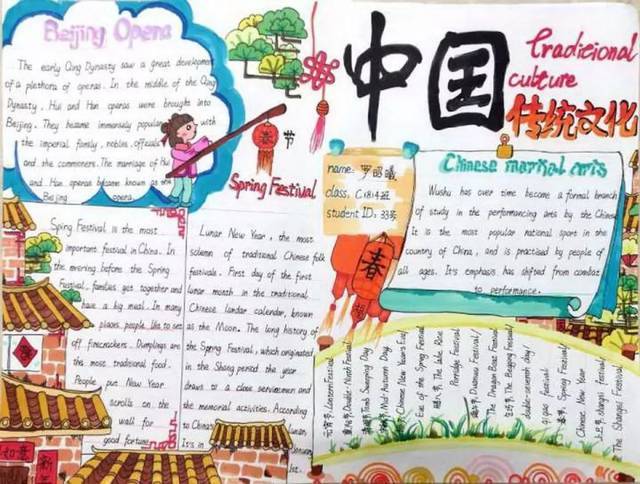 Beijing Opera
The early Qing Dynasty saw a great development
of a plethora of operas. In the middle of the Qing
Dynasty, Hui and Han operas were brought into
Beijing. They became immensely popular with
the imperial family, nobles, officials
and the commoners. The marriage of Hui
and Han operas became known as the
Beijing opera.
春
节
Spring Festival
中国
Tradicional
culture
传统文化
name:
class:
student ID: 33号
Chinese martial arts
Wushu has over time become a formal branch
of study in the performancing arts by the Chinese
It is the most popular national sport in the
country of China, and is practised by people of
all ages. It's emphasis has shifted from combat
to performance.
春
福
Spring Festival is the most
important festival in China. In
the evening before the Spring
Festival, families get together and
have a big meal. In many
places people like to set
off firecrackers. Dumplings are
the most traditional food.
People put New Year
scrolls on the
wall for
good fortune.
Lunar New Year, the most
solemn of traditional Chinese folk
festivals. First day of the first
lunar month in the traditional
Chinese landar calendar, known
as the Moon. The long history of
the Spring Festival, which originated
in the Shang period the year
draws to a close
the memorial activities. According
to China's lunar,
It's in
元宵节,Lantern Festival
重阳节,Double-Ninth Festival
Tomb Sweeping Day
Mid-Autumn Day
Chinese New Year's Eve/
Eve of the Spring Festival
腊八节, The Laba Rice
Porridge Festival
端午节,Duanwu Festival/
The Dragon Boat Festival
七巧节,The Begging Festival/
double-seventh day/
qiqiao festival
春节,Spring Festival/
Chinese New Year
上巳节,Shangsi festival/
The Shangsi Festival